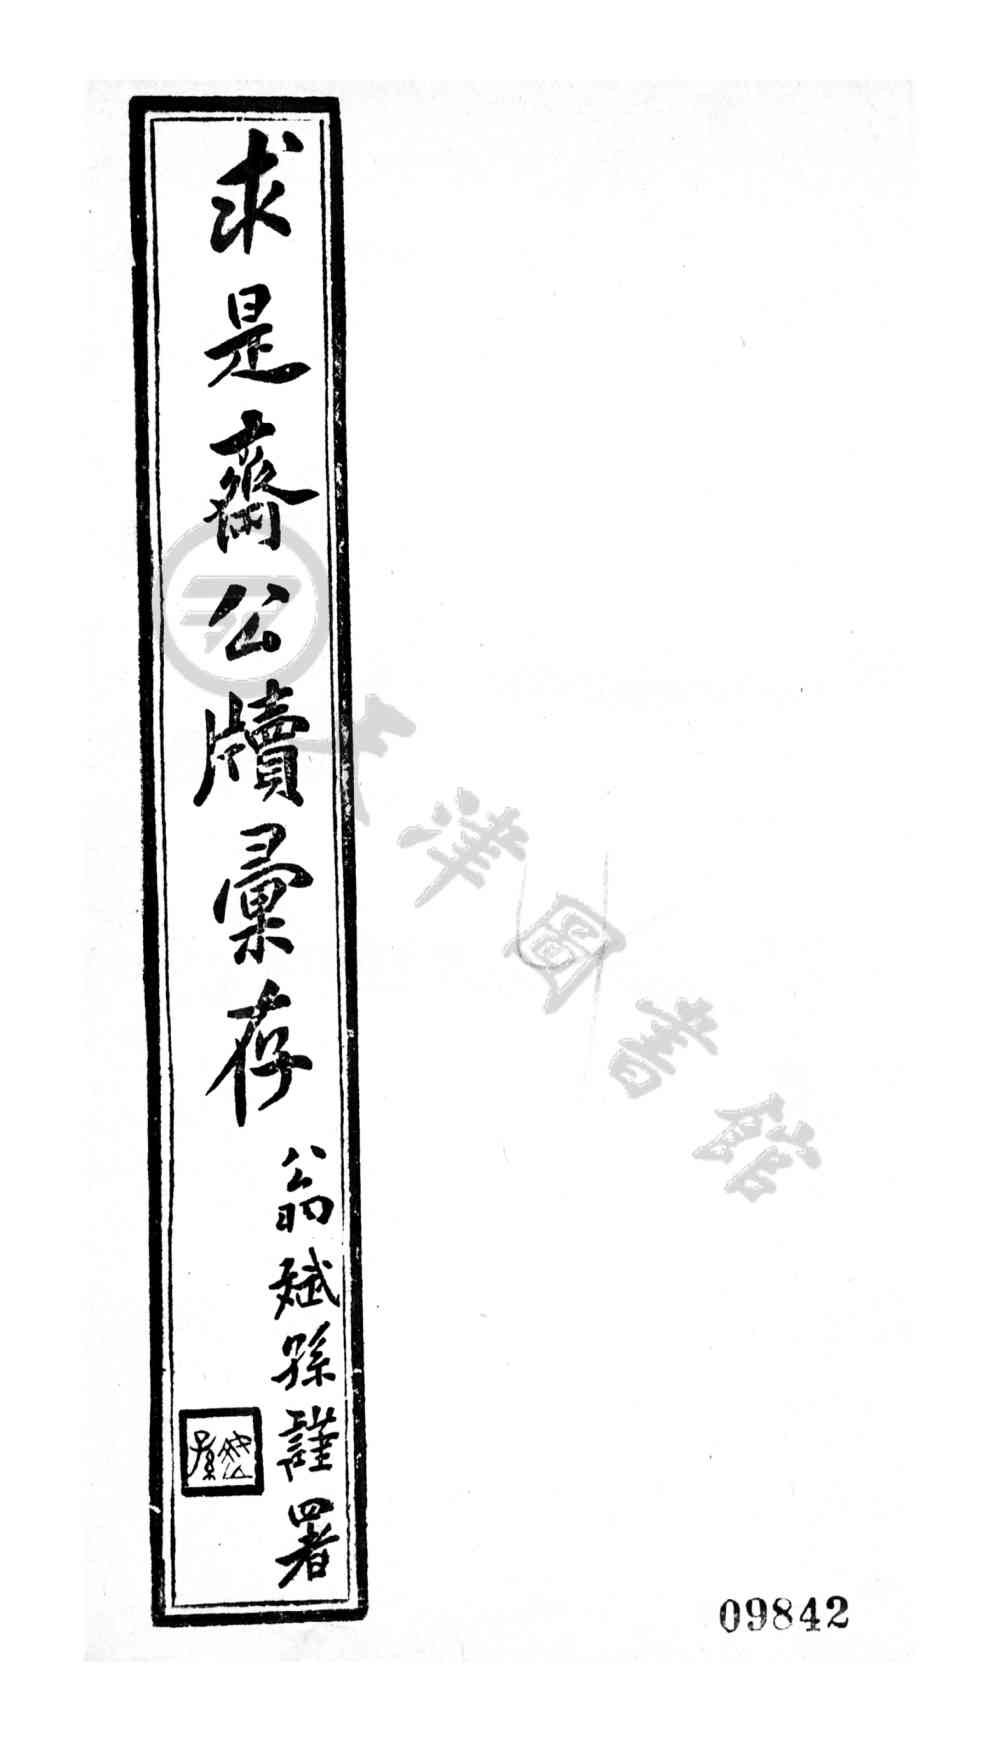 求是齋公牘彙存
翁斌孫謹署
斌孫
天津圖書館
09842